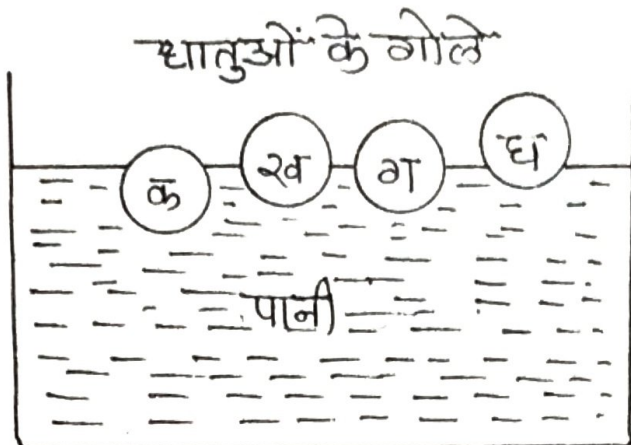 धातुओं के गोले
क ख ग घ
पानी